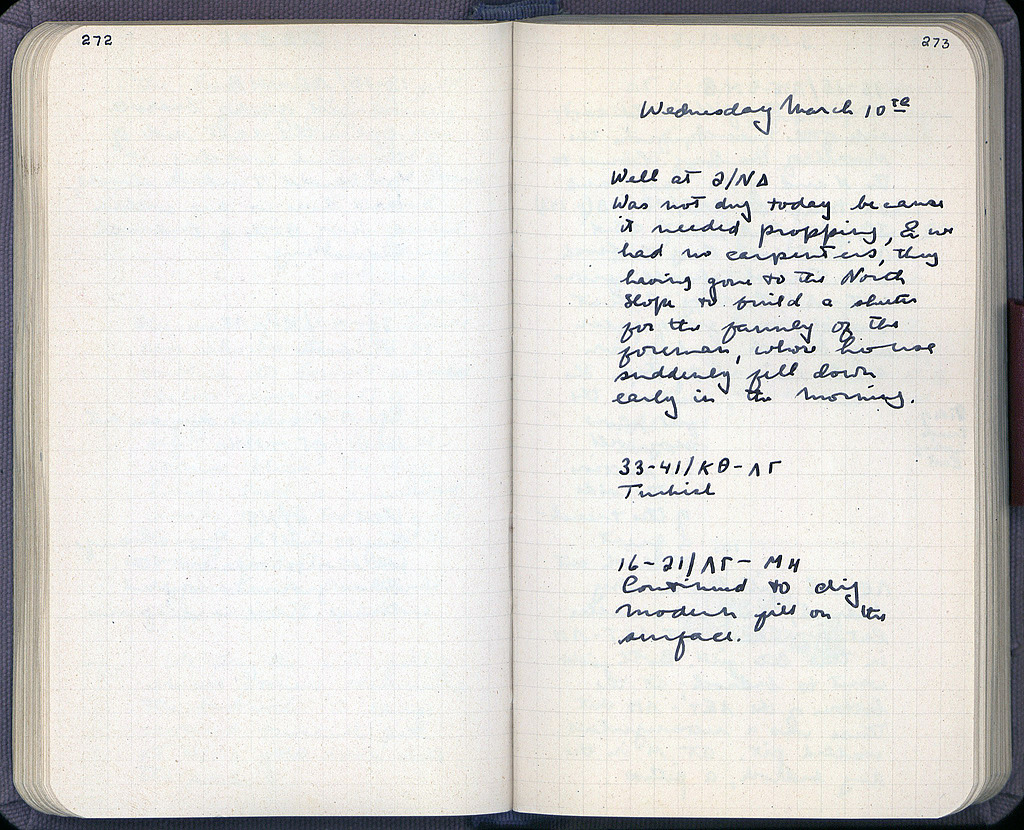 272
273
Wednesday March 10th
Well at 2/ΝΔ
Was not dug today because
it needed propping, & we
had no carpenters, they
having gone to the North
Slope to build a shelter
for the family of the
foreman, whose house
suddenly fell down
early in the morning.
33-41/ΚΘ-ΛΓ
Turkish
16-21/ΛΓ-ΜΗ
Continued to dig
modern fill on the
surface.